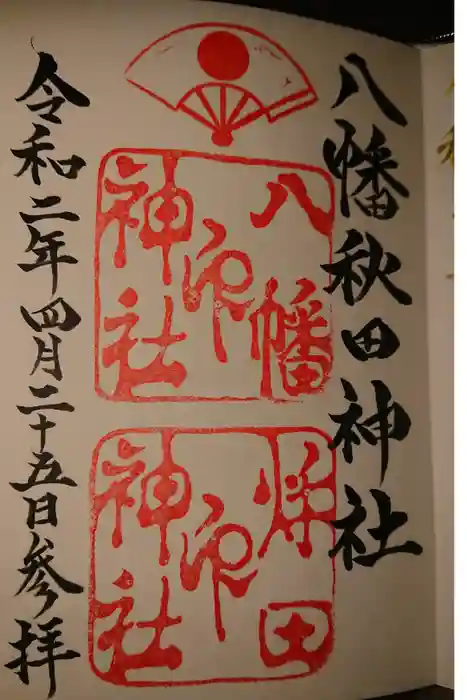 八幡秋田神社
八幡
神社
印
秋田
神社
印
令和二年四月二十五日参拝